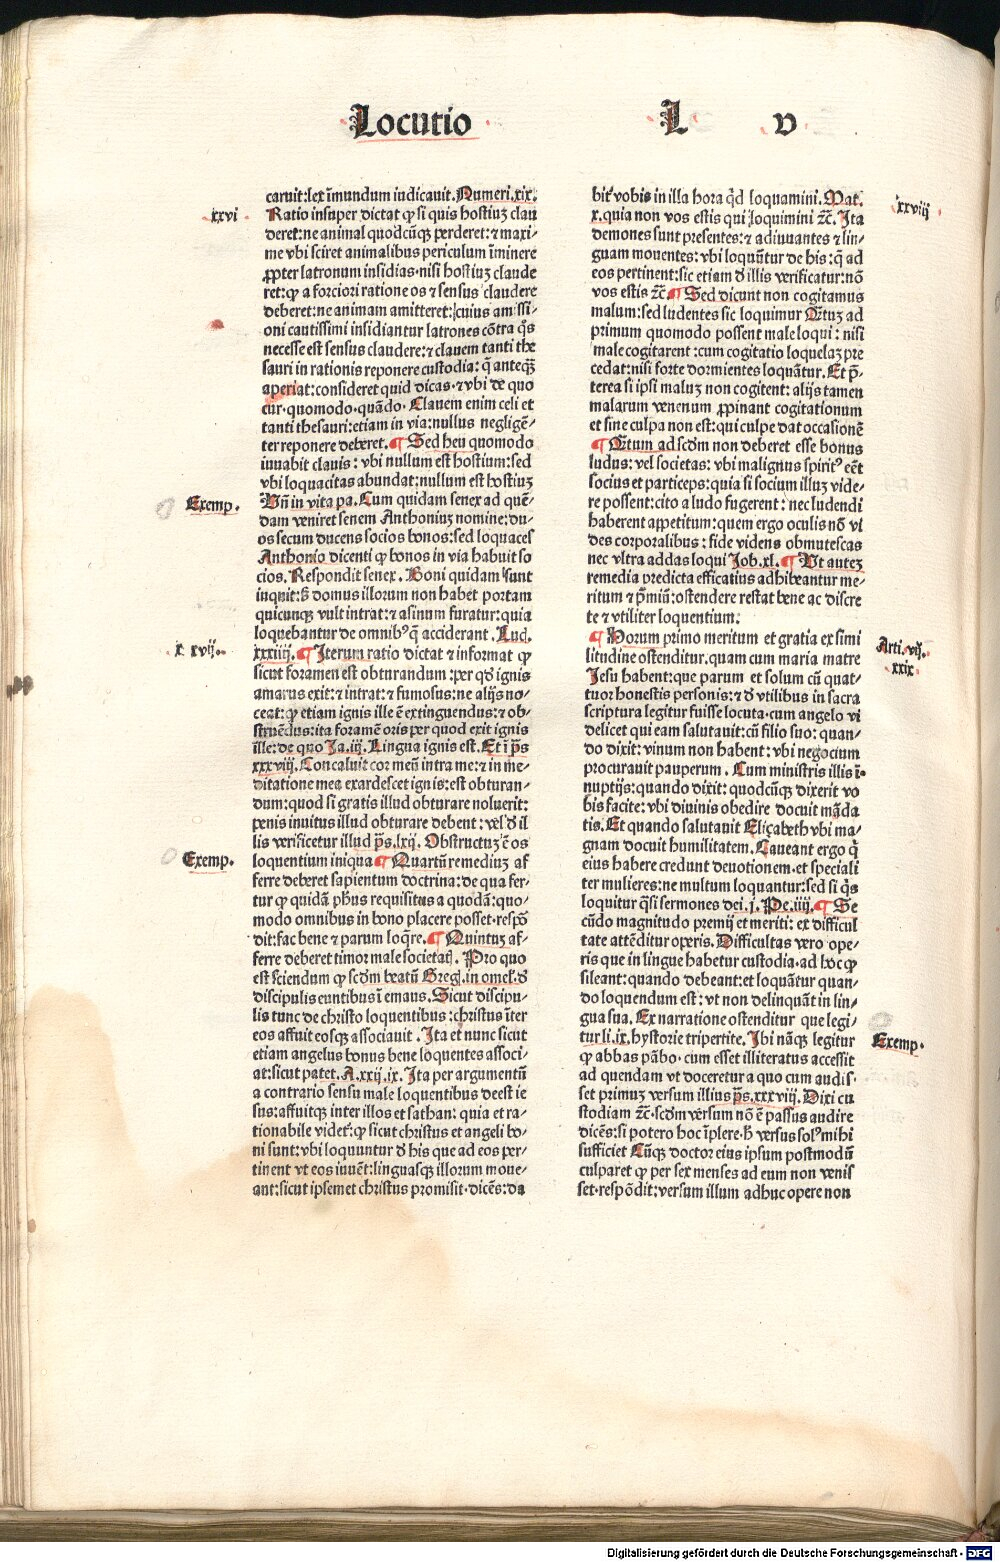 Locutio L v
caruit:lex īmundum iudicauit. Numeri.xix.
xxvi
Ratio insuper dictat ꝙ si quis hostiuȝ clau
deret:ne animal quodcūqȝ perderet:⁊ maxi-
me vbi sciret animalibus periculum īminere
ꝓpter latronum insidias·nisi hostiuȝ claude
ret:ꝙ a forciori ratione os ⁊ sensus claudere
deberet:ne animam amitteret:cuius amissi-
oni cautissimi insidiantur latrones cōtra q̄s
necesse est sensus claudere:⁊ clauem tanti the
sauri in rationis reponere custodia: q̄ anteqȝ̄
aperiat:consideret quid dicas·⁊ vbi de quo
cur·quomodo·quādo· Clauem enim celi et
tanti thesauri:etiam in via:nullus negligē-
ter reponere deberet. ¶ Sed heu quomodo
iuuabit clauis: vbi nullum est hostium:sed
vbi loquacitas abundat:nullum est hostiuȝ
Exemp.
Vn̄ in vita pa. Cum quidam senex ad quē-
dam veniret senem Anthoniuȝ nomine:du-
os secum ducens socios bonos:sed loquaces
Anthonio dicenti ꝙ bonos in via habuit so
cios. Respondit senex. Boni quidam sunt
inquit:sȝ domus illorum non habet portam
quicunqȝ vult intrat:⁊ asinum furatur:quia
loquebantur de omnibꝰ q̄ acciderant. Lud.
x xvij.
xxxiiij. ¶ Iterum ratio dictat ⁊ informat ꝙ
sicut foramen est obturandum:per qd̄ ignis
amarus exit:⁊ intrat:⁊ fumosus:ne alijs no-
ceat:ꝙ etiam ignis ille ē extinguendus:⁊ ob-
struēdus:ita foramē oris per quod exit ignis
ille:de quo Ja.iij. Lingua ignis est. Et ī ps̄
xxxviij. Concaluit cor meū intra me:⁊ in me-
ditatione mea exardescet ignis:est obturan-
dum:quod si gratis illud obturare noluerit:
penis inuitus illud obturare debent: vel d̄ il
lis verificetur illud ps̄.lxij. Obstructuȝ ē os
Exemp.
loquentium iniqua ¶ Quartū remediuȝ af
ferre deberet sapientum doctrina:de qua fer-
tur ꝙ quidā ph̄us requisitus a quodā:quo-
modo omnibus in bono placere posset·respō
dit:fac bene ⁊ parum loq̄re. ¶ Quintuȝ af-
ferre deberet timor male societatꝭ. Pro quo
est sciendum ꝙ scd̄m beatū Greg. in omel.d̄
discipulis euntibus ī emaus. Sicut discipu-
lis tunc de christo loquentibus:christus īter
eos affuit eosqȝ associauit. Ita et nunc sicut
etiam angelus bonus bene loquentes associ-
at:sicut patet. A.xxij.ix. Ita per argumentū
a contrario sensu male loquentibus deest ie
sus:affuitqȝ inter illos et sathan: quia et ra-
tionabile videt᷑:ꝙ sicut christus et angeli bo-
ni sunt:vbi loquuntur d̄ his que ad eos per-
tinent vt eos iuuēt:linguasqȝ illorum moue-
ant:sicut ipsemet christus promisit·dicēs:da
bit᷑ vobis in illa hora qd̄ loquamini. Mat.
xxviij
x.quia non vos estis qui loquimini ⁊c̄. Ita
demones sunt presentes:⁊ adiuuantes ⁊ lin-
guam mouentes: vbi loquūtur de his:q̄ ad
eos pertinent:sic etiam d̄ illis verificatur:nō
vos estis ⁊c̄. ¶ Sed dicunt non cogitamus
malum:sed ludentes sic loquimur Qr̄tuȝ ad
primum quomodo possent male loqui: nisi
male cogitarent:cum cogitatio loquelaȝ pre
cedat:nisi forte dormientes loquātur. Et p̄-
terea si ipsi maluȝ non cogitent: alijs tamen
malarum venenum ꝓpinant cogitationum
et sine culpa non est:qui culpe dat occasionē
¶ Qr̄tum ad scd̄m non deberet esse bonus
ludus: vel societas: vbi malignus spiritꝰ eēt
socius et particeps:quia si socium illuȝ vide-
re possent:cito a ludo fugerent: nec ludendi
haberent appetitum:quem ergo oculis nō vi
des corporalibus: fide videns obmutescas
nec vltra addas loqui Job.xl. ¶ Ut auteȝ
remedia predicta efficatius adhibeantur me-
ritum ⁊ p̄miū:ostendere restat bene ac discre
te ⁊ vtiliter loquentium:
Arti.vij.
xxix.
¶ Horum primo meritum et gratia ex simi
litudine ostenditur.quam cum maria matre
Jesu habent:que parum et solum cū quat-
tuor honestis personis:⁊ d̄ vtilibus in sacra
scriptura legitur fuisse locuta·cum angelo vi
delicet qui eam salutauit:cū filio suo: quan-
do dixit: vinum non habent: vbi negocium
procurauit pauperum. Cum ministris illis ī
nuptijs:quando dixit: quodcūqȝ dixerit vo
bis facite: vbi diuinis obedire docuit mādа
tis. Et quando salutauit Elizabeth vbi ma-
gnam docuit humilitatem. Caueant ergo q̄
eius habere credunt deuotionem·et speciali
ter mulieres:ne multum loquantur:sed si q̄s
loquitur q̄si sermones dei. j. Pe.iiij. ¶ Se
cūdo magnitudo premij et meriti: ex difficul
tate attēditur operis. Difficultas vero ope-
ris que in lingue habetur custodia·ad hoc ꝙ
sileant:quando debeant:et loquātur quan-
do loquendum est: vt non delinquāt in lin-
gua sua. Ex narratione ostenditur que legi-
Exemp.
tur li.ix.hystorie tripertite. Ibi nāqȝ legitur
ꝙ abbas pābo·cum esset illiteratus accessit
ad quendam vt doceretur a quo cum audis-
set primuȝ versum illius ps̄.xxxviij. Dixi cu
stodiam ⁊c̄.scd̄m versum nō ē passus audire
dicēs:si potero hoc īplere·h̄ versus solꝰ mihi
sufficiet Cūqȝ doctor eius ipsum postmodū
culparet ꝙ per sex menses ad eum non venis
set·respōdit:versum illum adhuc opere non
Digitalisierung gefördert durch die Deutsche Forschungsgemeinschaft - DFG